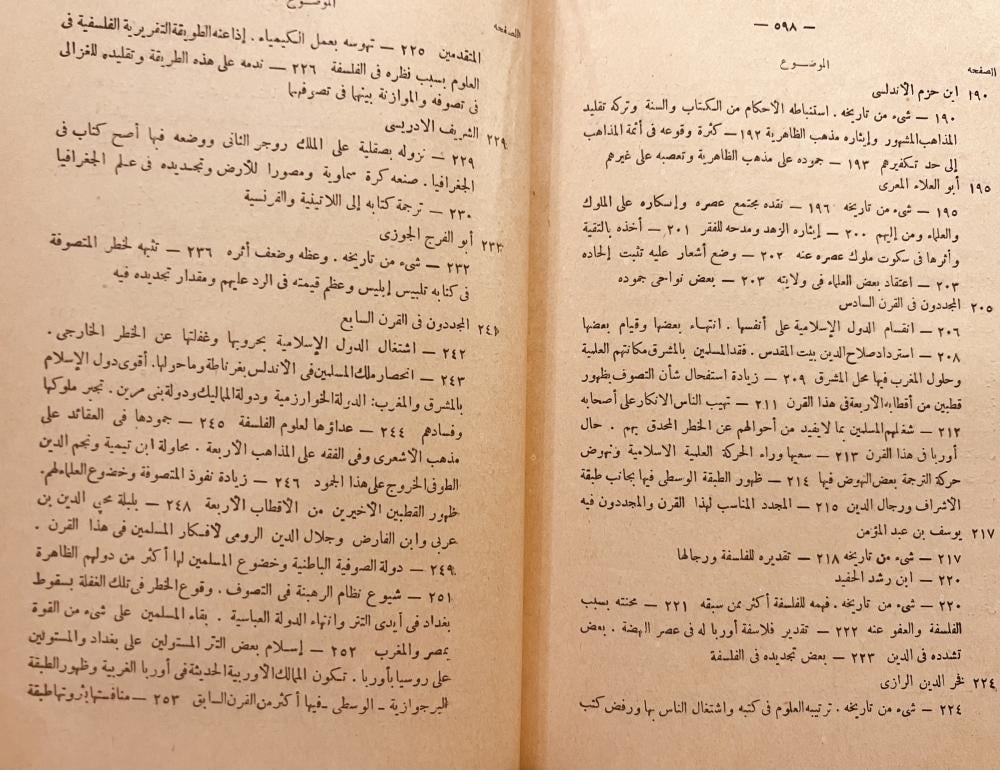 — ٥٩٨ —
الموضـــوع
الصفحه
١٩٠ ابن حزم الأندلسى
١٩٠ — شىء من تاريخه . استنباطه الأحكام من الكتاب والسنة وتركه تقليد
المذاهب المشهور وإيثاره مذهب الظاهرية ١٩٢ — كثرة وقوعه فى أئمة المذاهب
إلى حد تكفيرهم ١٩٣ — جموده على مذهب الظاهرية وتعصبه على غيرهم
١٩٥ أبو العلاء المعرى
١٩٥ — شىء من تاريخه ١٩٦ — نقده مجتمع عصره وإنكاره على الملوك
والعلماء ومن إليهم ٢٠٠ — إيثاره الزهد ومدحه للفقر ٢٠١ — أخذه بالتقية
وأثرها فى سكوت ملوك عصره عنه ٢٠٢ — وضع أشعار عليه تثبت إلحاده
٢٠٣ — اعتقاد بعض العلماء فى ولايته ٢٠٣ — بعض نواحى جموده
٢٠٥ المجددون فى القرن السادس
٢٠٦ — انقسام الدول الإسلامية على أنفسها . انتهاء بعضها وقيام بعضها
٢٠٨ — استرداد صلاح الدين بيت المقدس . فقد المسلمين بالمشرق مكانتهم العلمية
وحلول المغرب فيها محل المشرق ٢٠٩ — زيادة استفحال شأن التصوف بظهور
قطبين من أقطابه الأربعة فى هذا القرن ٢١١ — تهيب الناس الانكار على أصحابه
٢١٢ — شغلهم المسلمين بما لا يفيد من أحوالهم عن الخطر المحدق بهم . حال
أوربا فى هذا القرن ٢١٣ — سعيها وراء الحركة العلمية الاسلامية ونهوض
حركة الترجمة بعض النهوض فيها ٢١٤ — ظهور الطبقة الوسطى فيها بجانب طبقة
الأشراف ورجال الدين ٢١٥ — المجدد المناسب لهذا القرن والمجددون فيه
٢١٧ يوسف بن عبد المؤمن
٢١٧ — شىء من تاريخه ٢١٨ — تقديره للفلسفة ورجالها
٢٢٠ — ابن رشد الحفيد
٢٢٠ — شىء من تاريخه . فهمه للفلسفة أكثر ممن سبقه ٢٢١ — محنته بسبب
الفلسفة والعفو عنه ٢٢٢ — تقدير فلاسفة أوربا له فى عصر النهضة . بعض
تشدده فى الدين ٢٢٣ — بعض تجديده فى الفلسفة
٢٢٤ فخر الدين الرازى
٢٢٤ — شىء من تاريخه . ترتيبه العلوم فى كتبه واشتغال الناس بها ورفض كتب
الموضوع
الصفحه
المتقدمين ٢٢٥ — تهوسه بعمل الكيمياء . إذاعته الطريقة التقريرية الفلسفية فى
العلوم بسبب نظره فى الفلسفة ٢٢٦ — ندمه على هذه الطريقة وتقليده للغزالى
فى تصوفه والموازنة بينهما فى تصوفهما
٢٢٩ الشريف الادريسى
٢٢٩ — نزوله بصقلية على الملك روجر الثانى ووضعه فيها أصح كتاب فى
الجغرافيا . صنعه كرة سماوية ومصورا للأرض وتجديده فى علم الجغرافيا
٢٣٠ — ترجمة كتابه إلى اللاتينية والفرنسية
٢٣٢ أبو الفرج الجوزى
٢٣٢ — شىء من تاريخه . وعظه وضعف أثره ٢٣٦ — تنبهه لخطر المتصوفة
فى كتابه تلبيس إبليس وعظم قيمته فى الرد عليهم ومقدار تجديده فيه
٢٤١ المجددون فى القرن السابع
٢٤٢ — اشتغال الدول الإسلامية بحروبها وغفلتها عن الخطر الخارجى .
٢٤٣ — انحصار ملك المسلمين فى الأندلس بغرناطة وما حولها . أقوى دول الإسلام
بالمشرق والمغرب: الدولة الخوارزمية ودولة المماليك ودولة بنى مرين . تجبر ملوكها
وفسادهم ٢٤٤ — عداؤها لعلوم الفلسفة ٢٤٥ — جمودها فى العقائد على
مذهب الأشعرى وفى الفقه على المذاهب الأربعة . محاولة ابن تيمية ونجم الدين
الطوفى الخروج على هذا الجمود ٢٤٦ — زيادة نفوذ المتصوفة وخضوع العلماء لهم.
ظهور القطبين الأخيرين من الأقطاب الأربعة ٢٤٨ — بلبلة محيى الدين بن
عربى وابن الفارض وجلال الدين الرومى لأفكار المسلمين فى هذا القرن .
٢٤٩ — دولة الصوفية الباطنية وخضوع المسلمين لها أكثر من دولهم الظاهرة
٢٥١ — شيوع نظام الرهبنة فى التصوف . وقوع الخطر فى تلك الغفلة بسقوط
بغداد فى أيدى التتر وانتهاء الدولة العباسية . بقاء المسلمين على شىء من القوة
بمصر والمغرب ٢٥٢ — إسلام بعض التتر المستولين على بغداد والمستولين
على روسيا بأوربا . تكون الممالك الأوربية الحديثة فى أوربا الغربية وظهور الطبقة
البرجوازية — الوسطى — فيها أكثر من القرن السابق ٢٥٣ — منافستها بثروتها طبقة